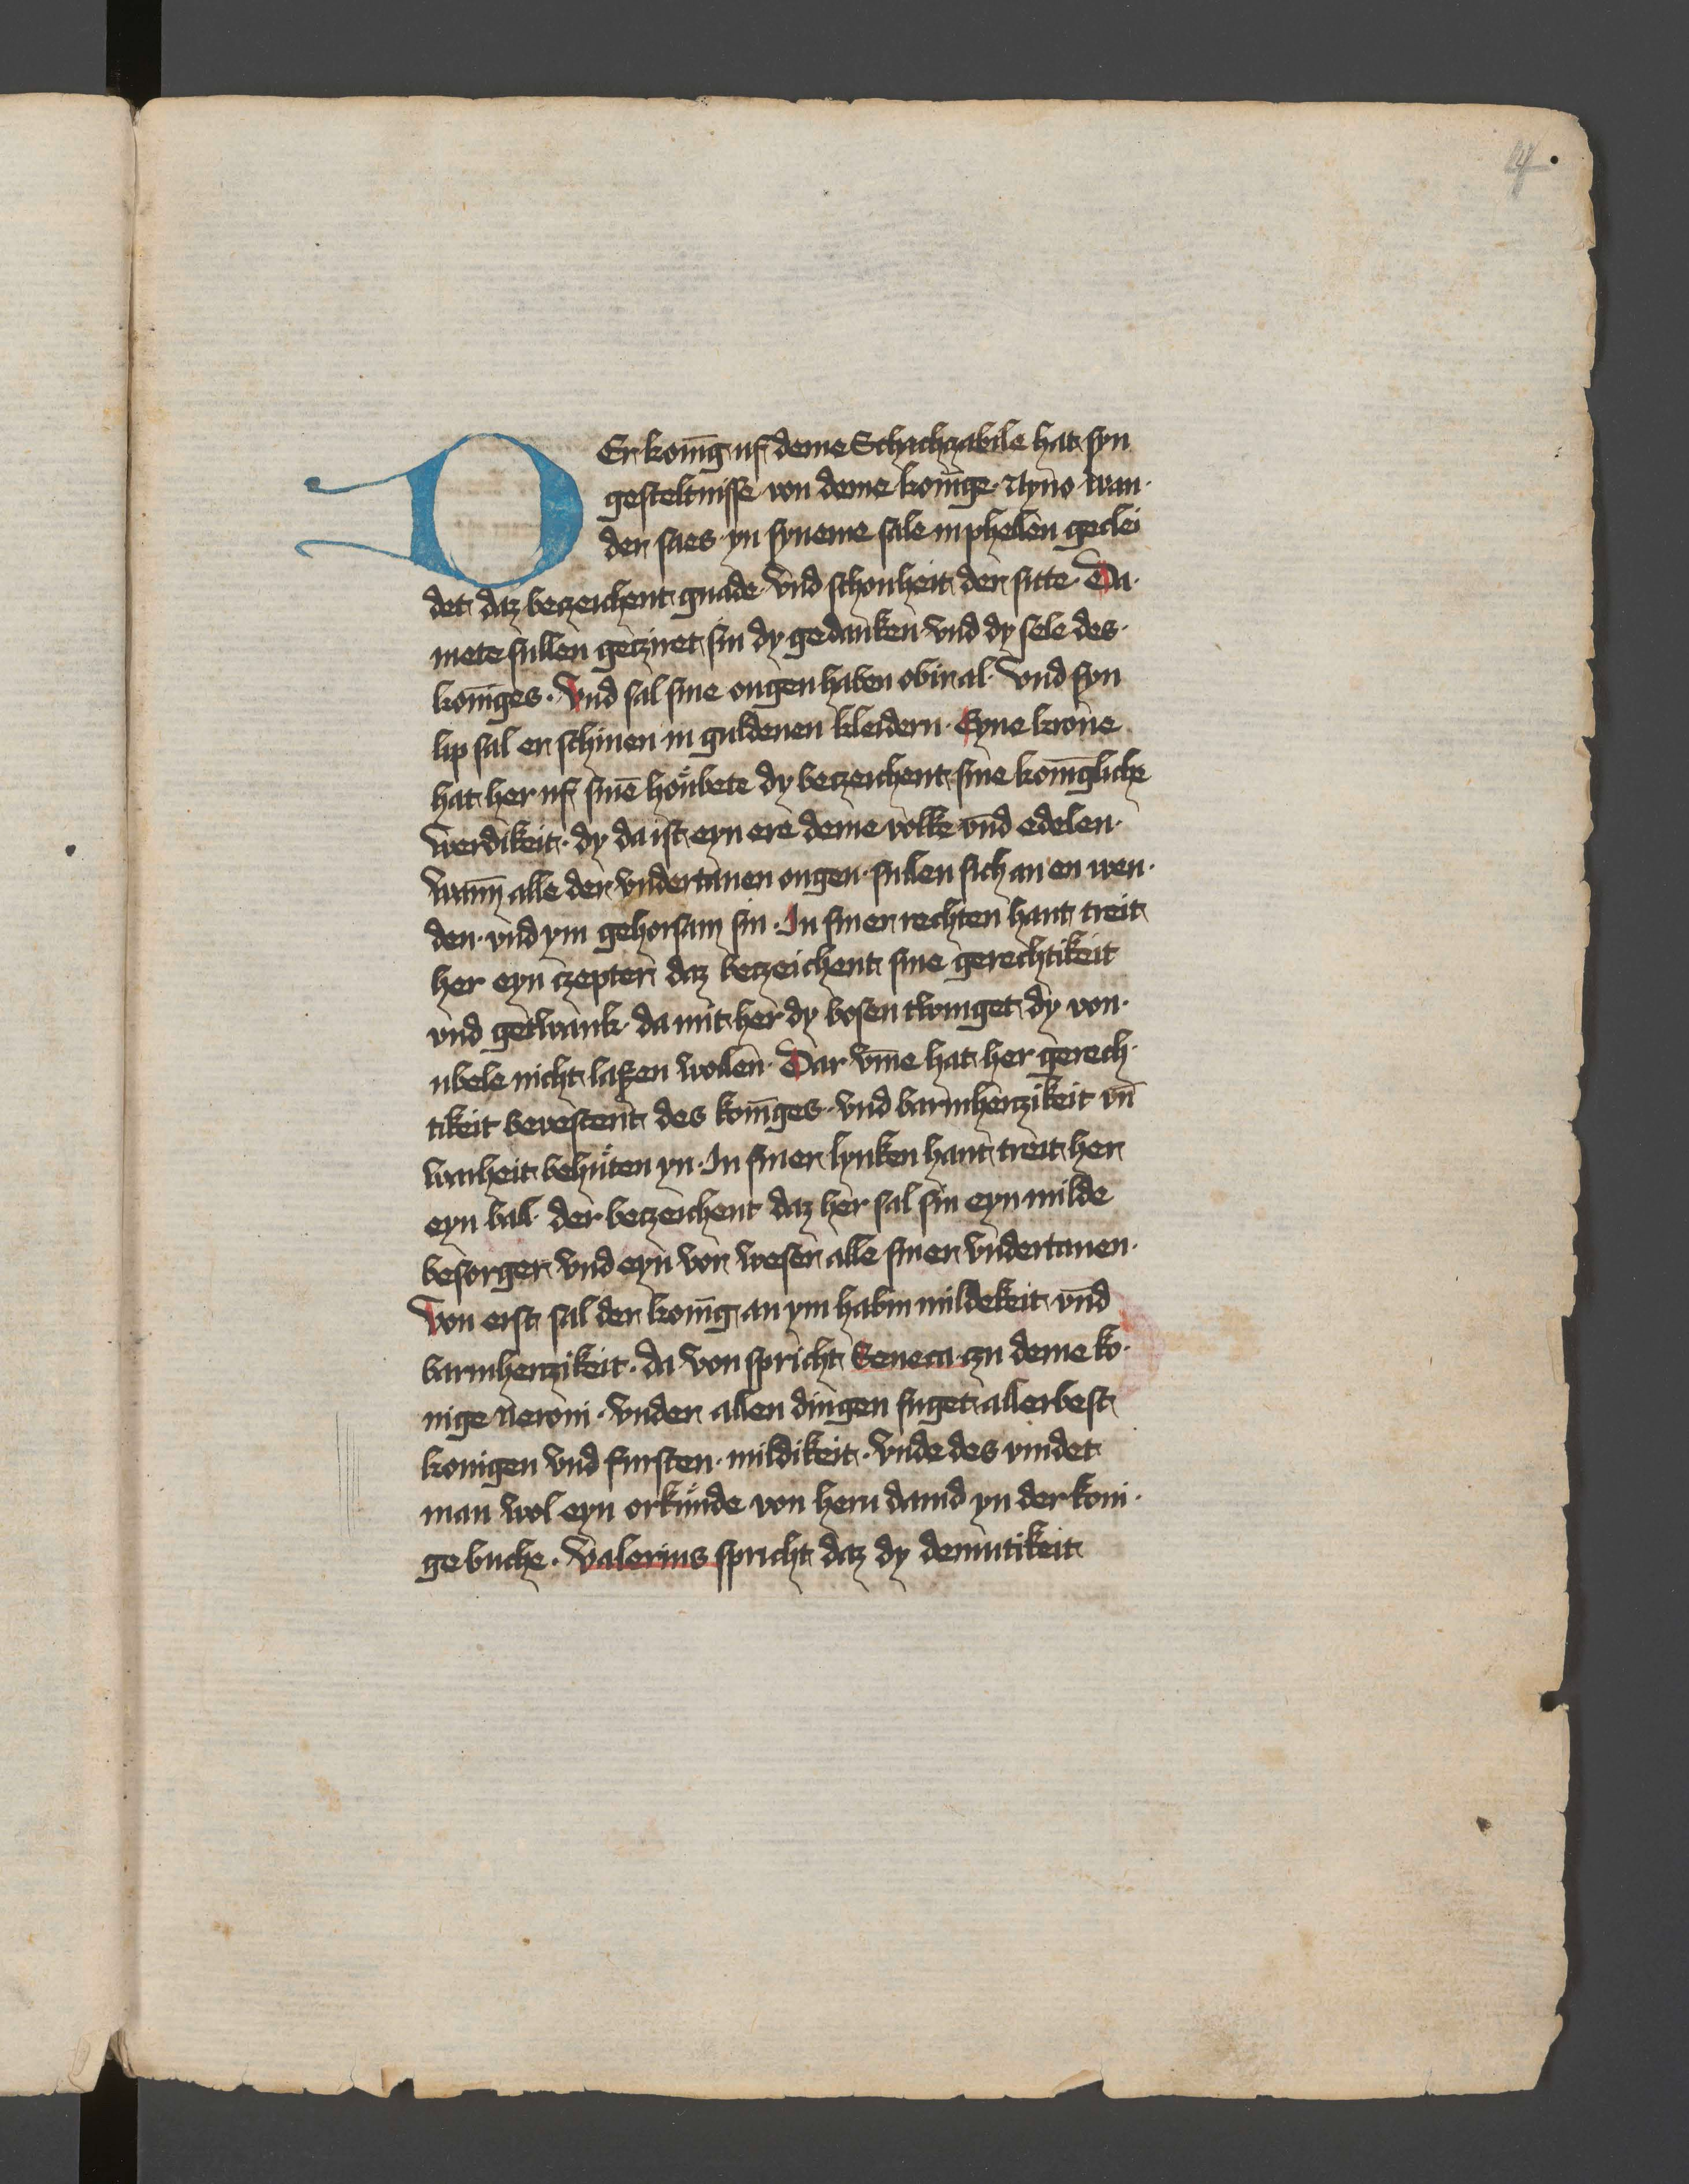 4
DEr konīg uf deme Schachzabile hat syn
gesteltnisse von deme konīge Nyno wan
der saes yn syneme sale in phellen geclei
det daz beczeichent gnade vnd schonheit der sitte. Da
mete sullen gecziret sin dy gedanken vnd dy sele des
konīges. Vnd sal sine ougen haben obir al. Vnd syn
lip sal er schinen in guldenen kleidern. Eyne krone
hat her uf sinē houbete dy beczeichent sine konīgliche
werdikeit. dy da ist eyn ere deme volke vnd edelen
wann alle der vndertanen ougen sullen sich an en wen
den vnd ym gehorsam sin. In siner rechten hant treit
her eyn czepter daz beczeichent sine gerechtikeit
vnd getwank da mit her dy bosen twinget dy von
ubele nicht laßen wollen. Dar vm̄e hat her gerech
tikeit bevestent des konīges vnd barmherzikeit vn̄
warheit behuten yn. In siner lynken hant treit her
eyn bal der beczeichent daz her sal sin eyn milde
besorger vnd eyn vor weser alle siner vndertanen
Von erst sal der konīg an ym habin mildekeit vnd
barmherzikeit. da von spricht Seneca czu deme ko
nige neroni. vnder allen dingen fuget allerbest
konigen vnd fursten mildikeit. Vnde des vindet
man wol eyn orkunde von hern dauid yn der koni
ge buche. Valerius spricht daz dy demutikeit